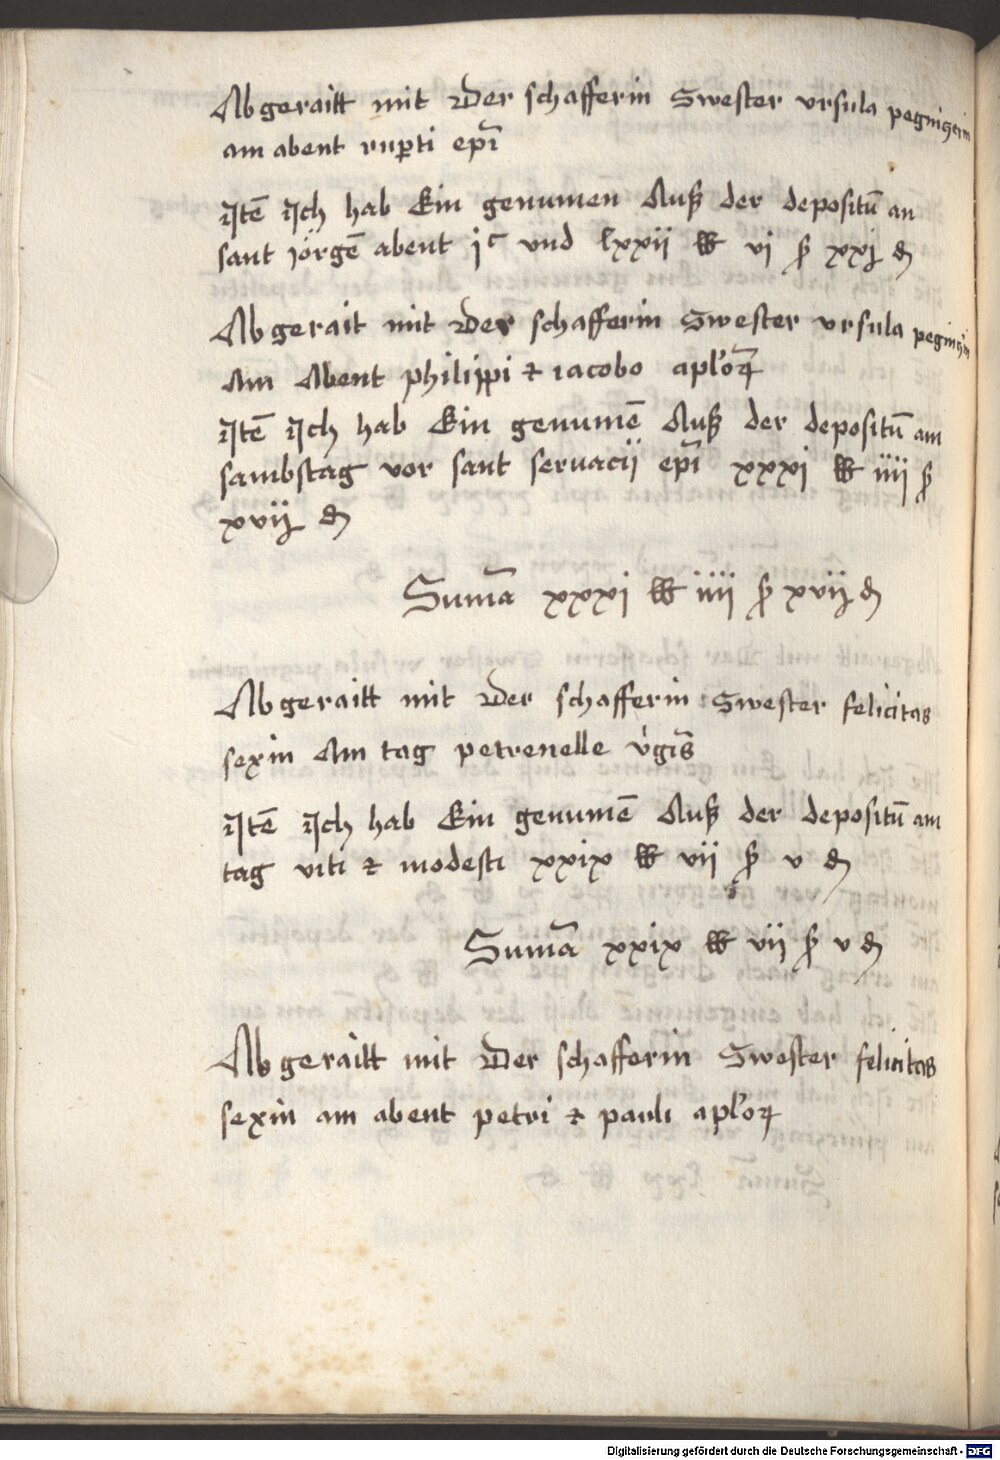 Abgeraitt mit der schafferin Swester vrsula pegnigerin
am abent rup̲ti ep̅i
Itē Ich hab Ein genumen Auß der depositū an
sant jörgē abent jᶜ vnd lxxii ℔ vj ß xxj ₰
Abgerait mit der schafferin Swester vrsula
Am Abent philippi ⁊ iacobo apl'oꝝ
Itē Ich hab Ein genumē Auß der depositū am
sambstag vor sant seruacij ep̅i xxxj ℔ iiij ß
xvij ₰
Sum̅a xxxj ℔ iiij ß xvij ₰
Abgeraitt mit der schafferin Swester felicitas
sexin Am tag petronelle v'gīs
Itē Ich hab Ein genumē Auß der depositū am
tag viti ⁊ modesti xxix ℔ vij ß v ₰
Sum̅a xxix ℔ vij ß v ₰
Abgeraitt mit der schafferin Swester felicitas
sexin am abent petri ⁊ pauli apl'oꝝ
Digitalisierung gefördert durch die Deutsche Forschungsgemeinschaft - DFG